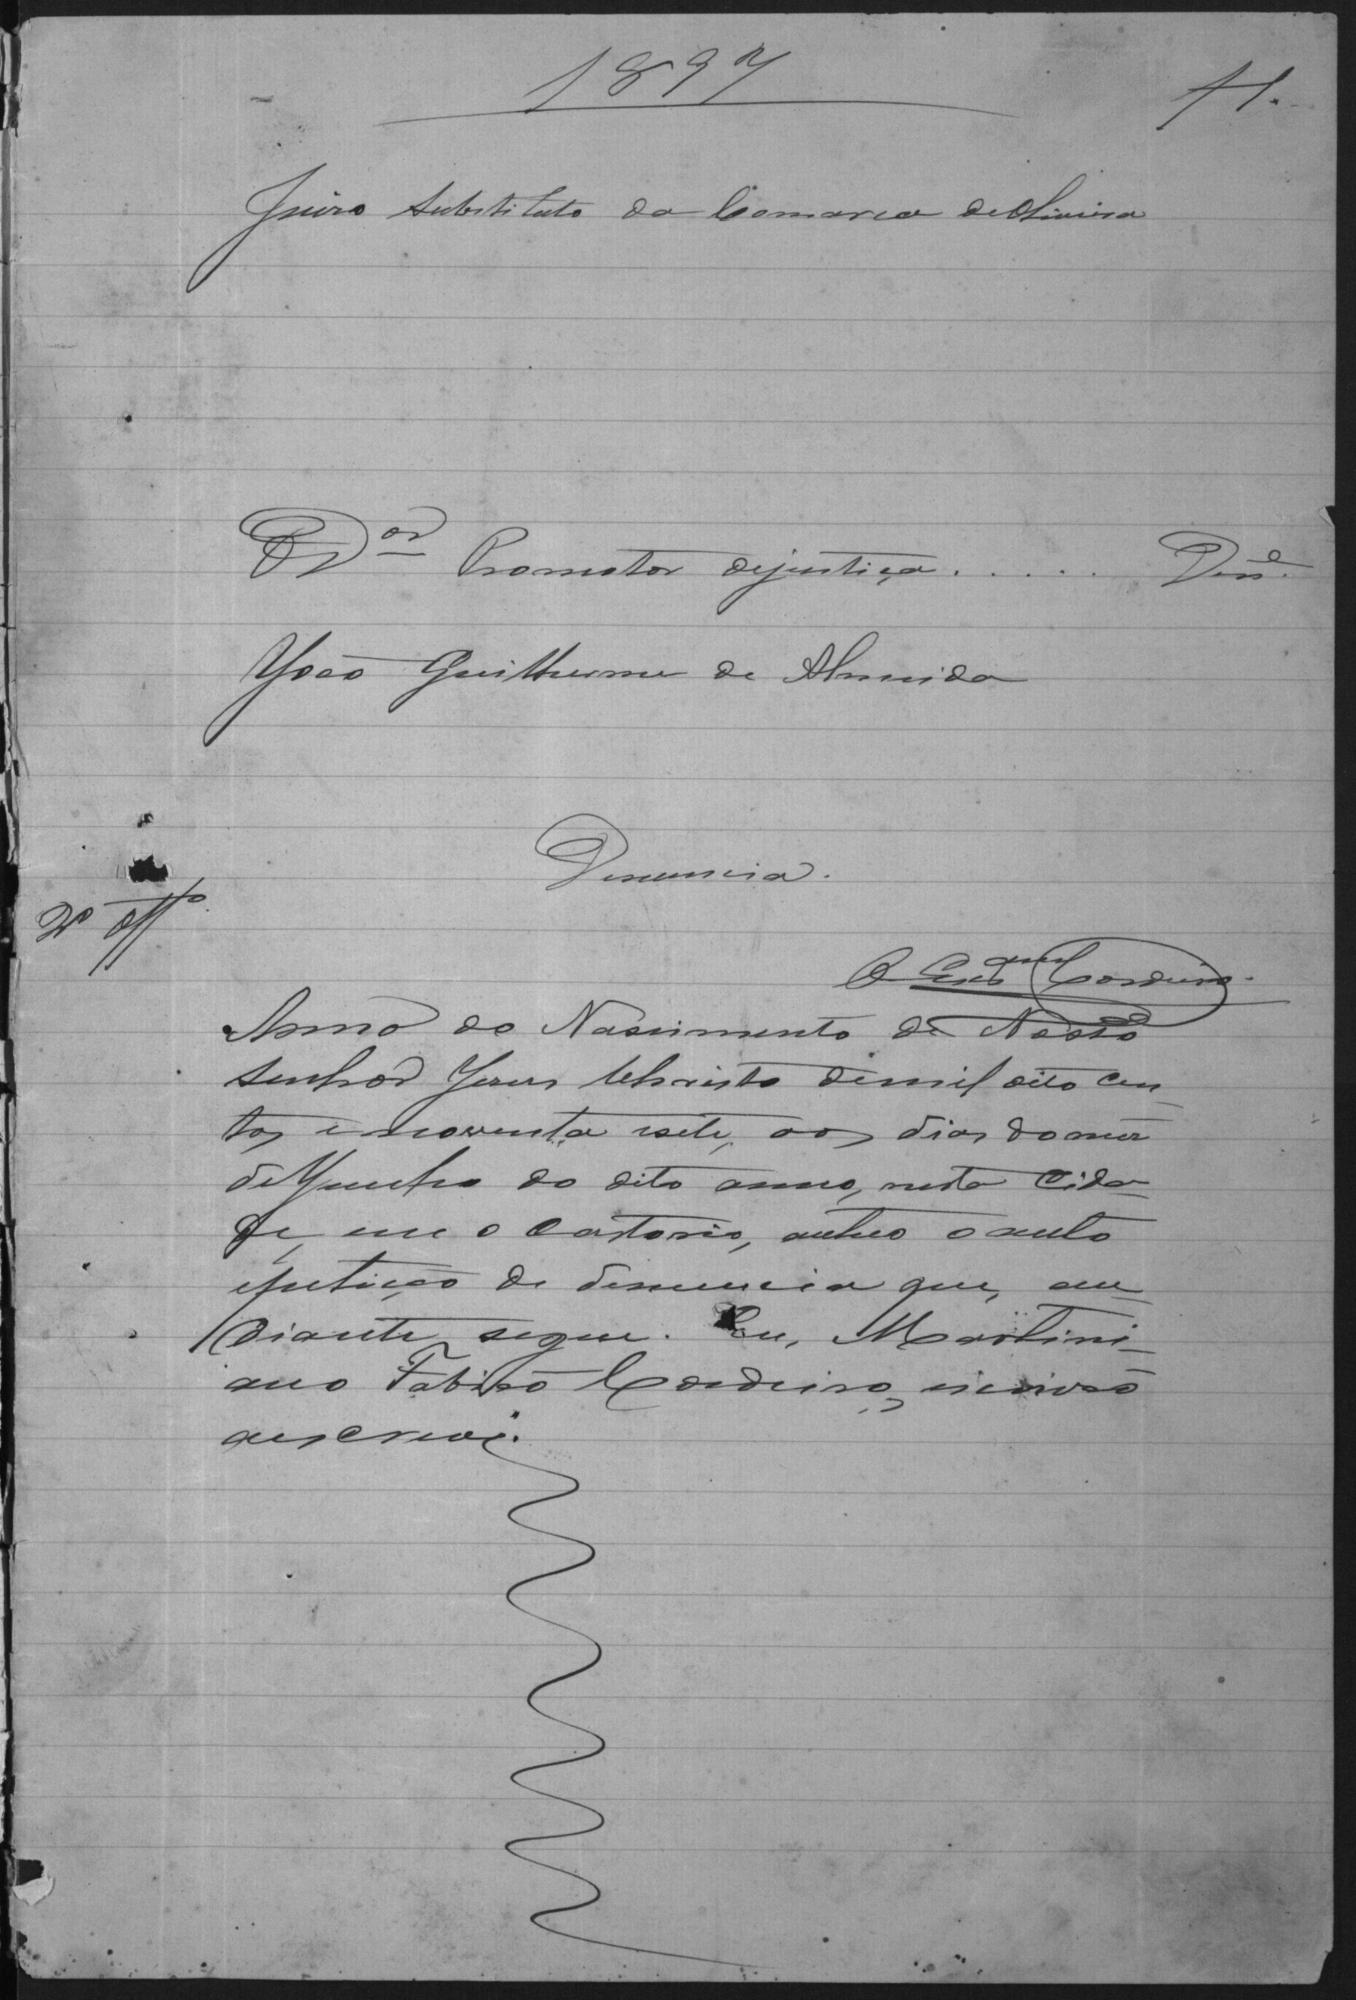 1897
fl.
Juizo Substituto da Comarca de Oliveira
O Dor Promotor dejustiça..... Dene.
João Guilherme de Almeida
Denuncia.
2º Offo
O Escam Cordeiro.
Anno do Nascimento de Nosso
Senhor Jesus Christo demil oito cen
tos, e noventa esete, aos dias domez
deJunho do dito anno, nesta Cida
de, em o Cartorio, autuo o auto
epetição de denuncia que, a
diante, segue. Eu, Martini
ano Cordeiro, escrivão
quescrevi.